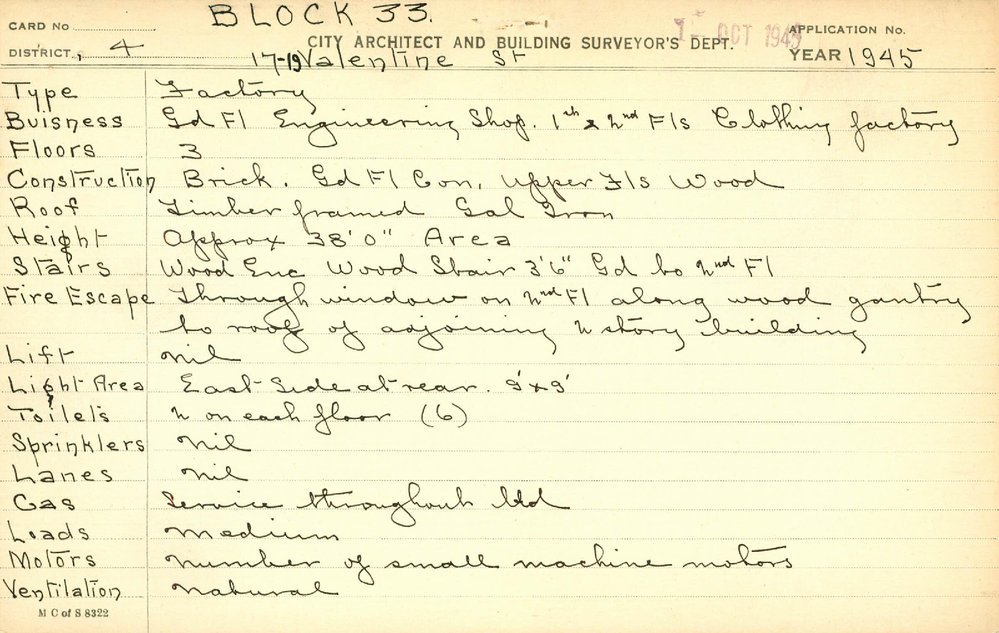 BLOCK 33.
CARD No
DISTRICT, 4
CITY ARCHITECT AND BUILDING SURVEYOR'S DEPT.
OCT 1945
APPLICATION No.
17-19 Valentine St
YEAR 1945
Type Factory
Buisness Gd Fl Engineering Shop. 1th & 2nd Fls Clothing factory
Floors 3
Construction Brick. Gd Fl Con. Upper Fls Wood
Roof Timber framed Gal Iron
Height Approx 38'0" Area
Stairs Wood Enc Wood Stair 3'6" Gd to 2nd Fl
Fire Escape Through window on 2nd Fl along wood gantry
to roof of adjoining 2 story building
Lift Nil
Light Area East Side at rear. 9'x9'
Toilets 2 on each floor (6)
Sprinklers Nil
Lanes Nil
Gas Service throughout bld
Loads Medium
Motors Number of small machine motors
Ventilation Natural
M C of S 8322